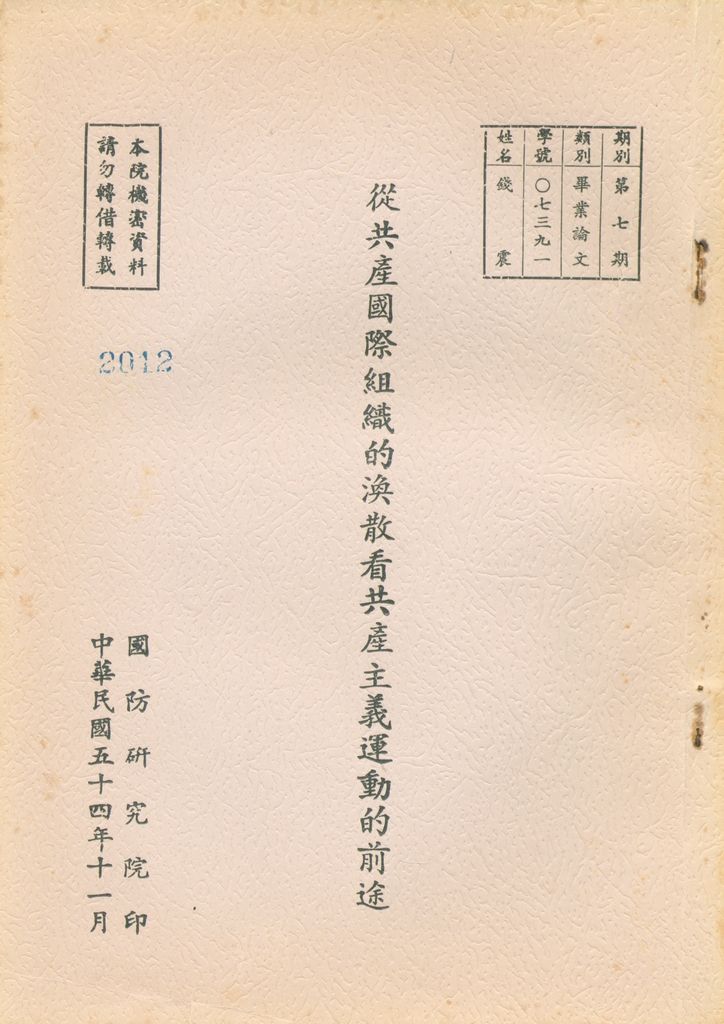 期別 第七期
類別 畢業論文
學號 〇七三九一
姓名 錢震
從共產國際組織的渙散看共產主義運動的前途
本院機密資料
請勿轉借轉載
2012
國防研究院印
中華民國五十四年十一月